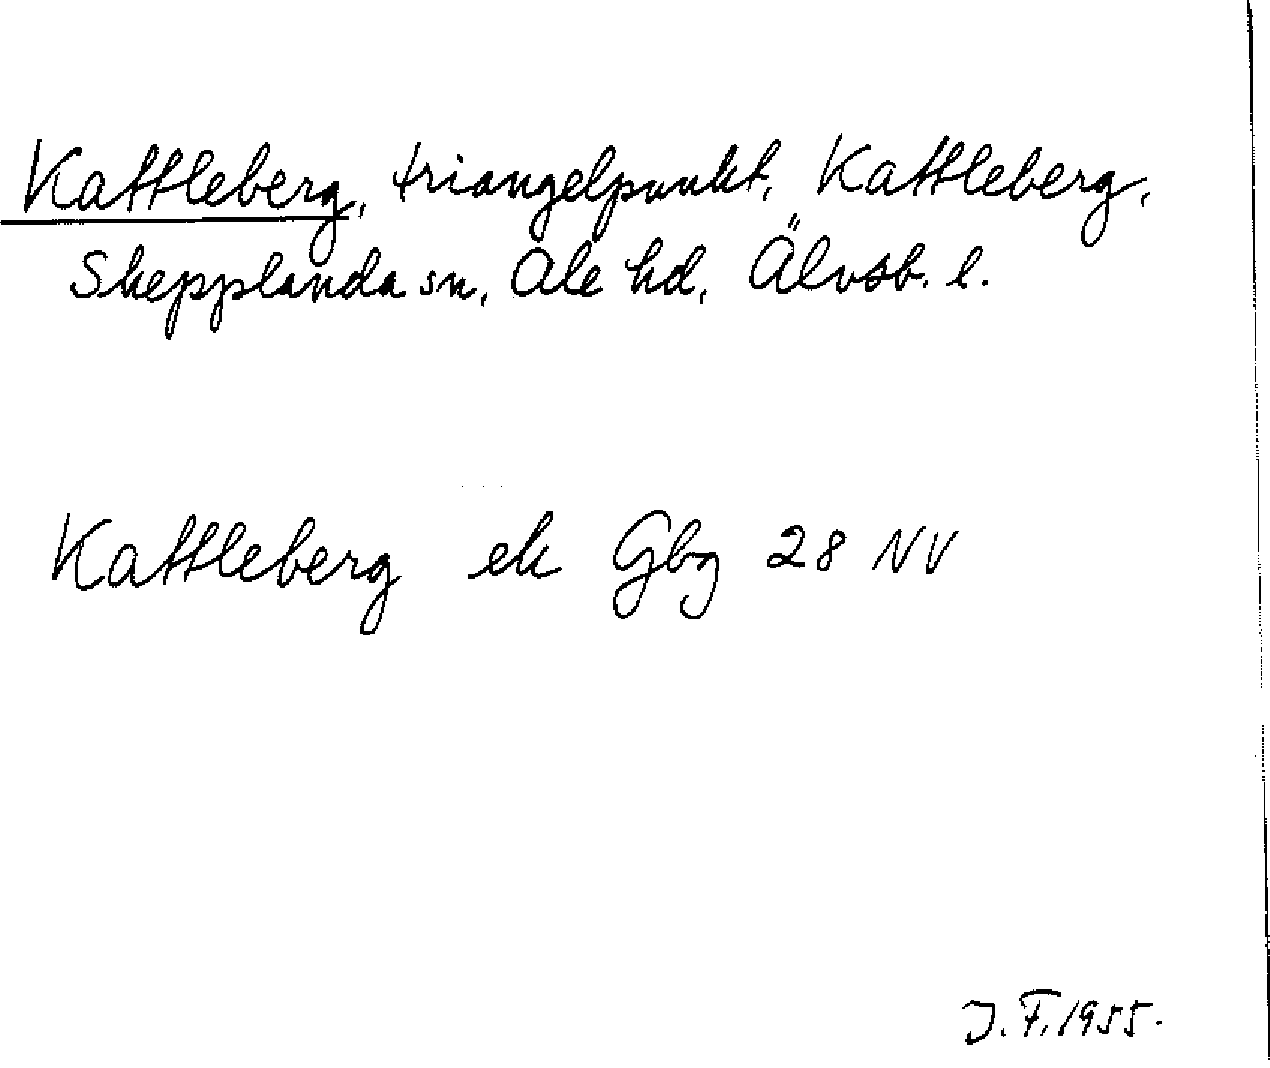 Kattleberg, triangelpunkt, Kattleberg,
Skepplanda sn, Ale hd, Älvsb. l.
Kattleberg ek Gbg 28 NV
J. F. 1955.